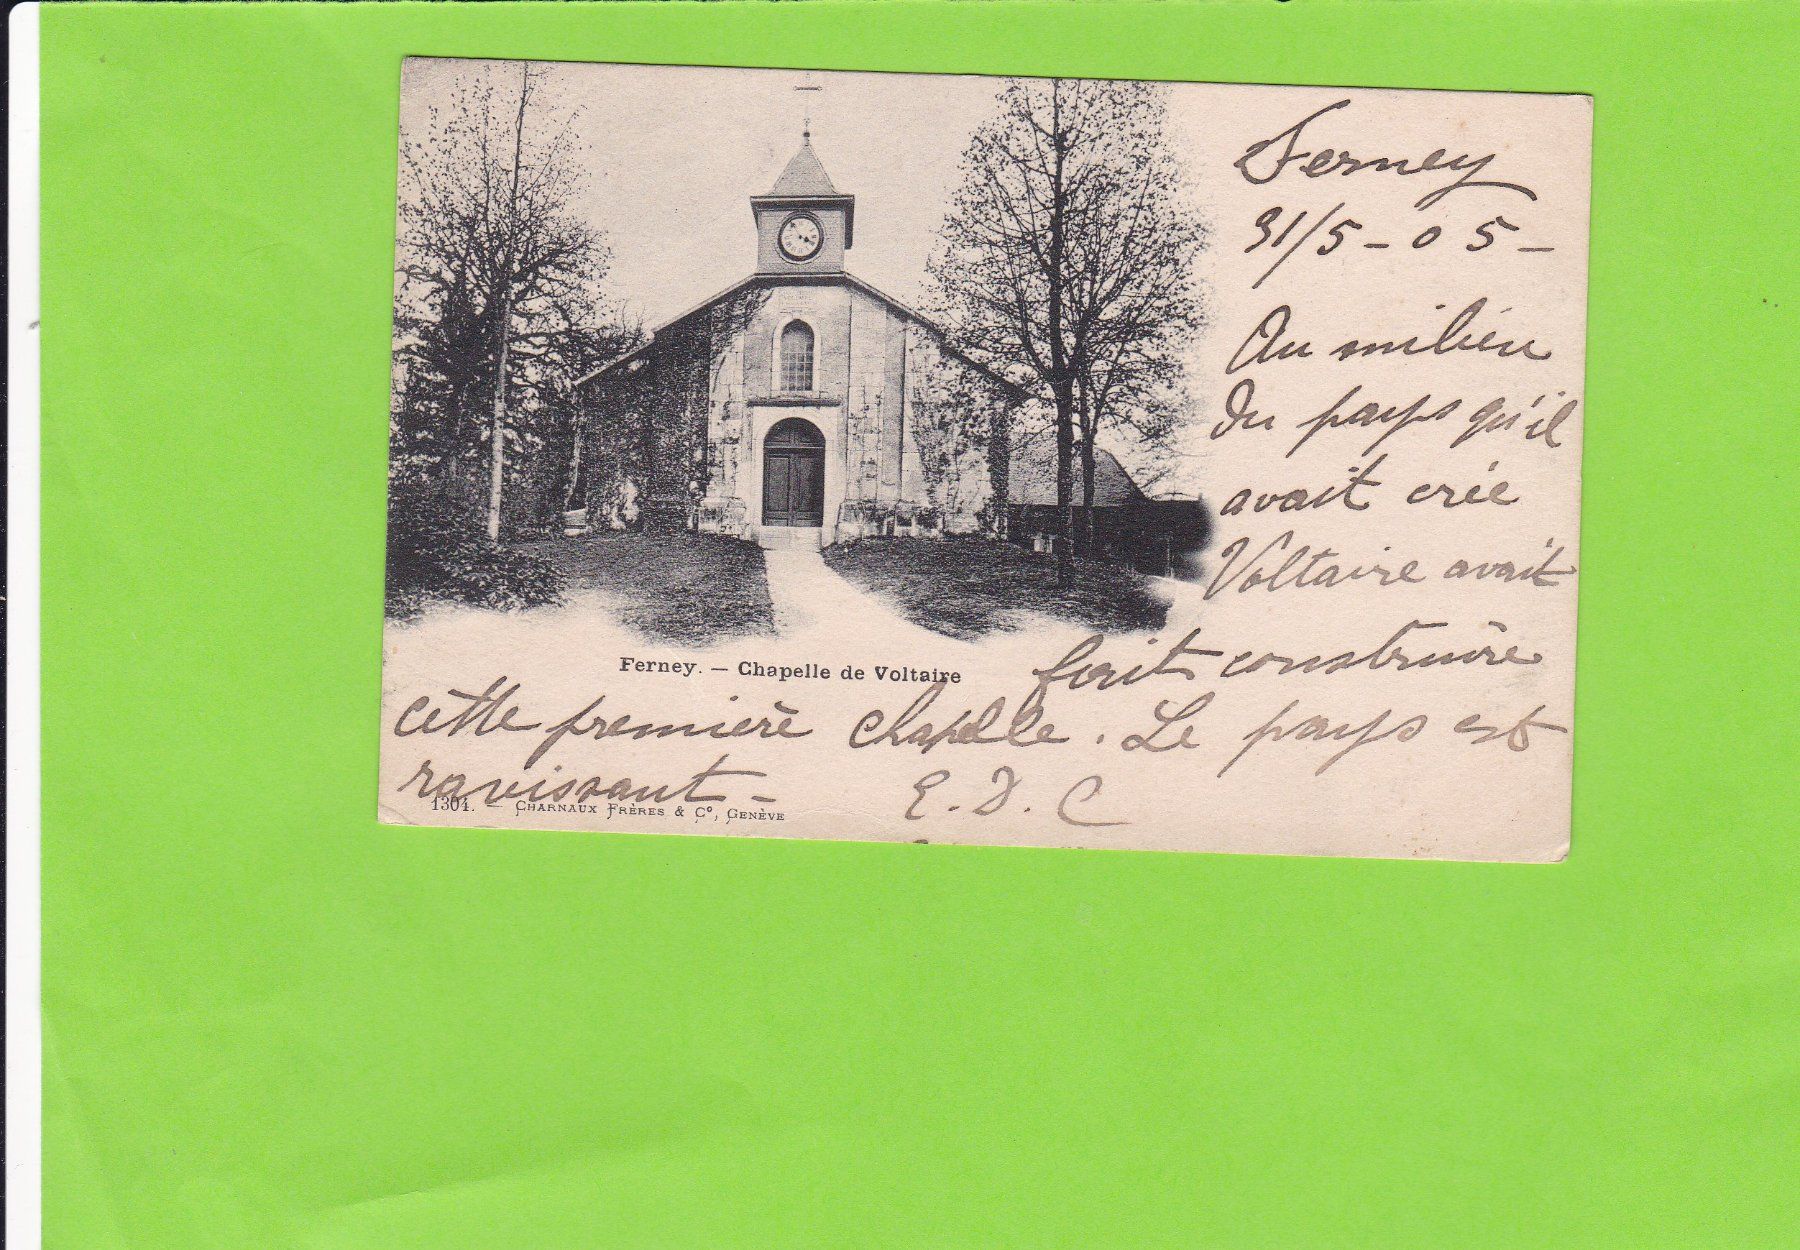 Ferney
31/5 - 05 -
Au milieu
du pays qu'il
avait crée
Voltaire avait
fait construire
cette première chapelle. Le pays est
ravissant -
E. D. C
Ferney. — Chapelle de Voltaire
1304. — Charnaux Frères & Cº, Genève